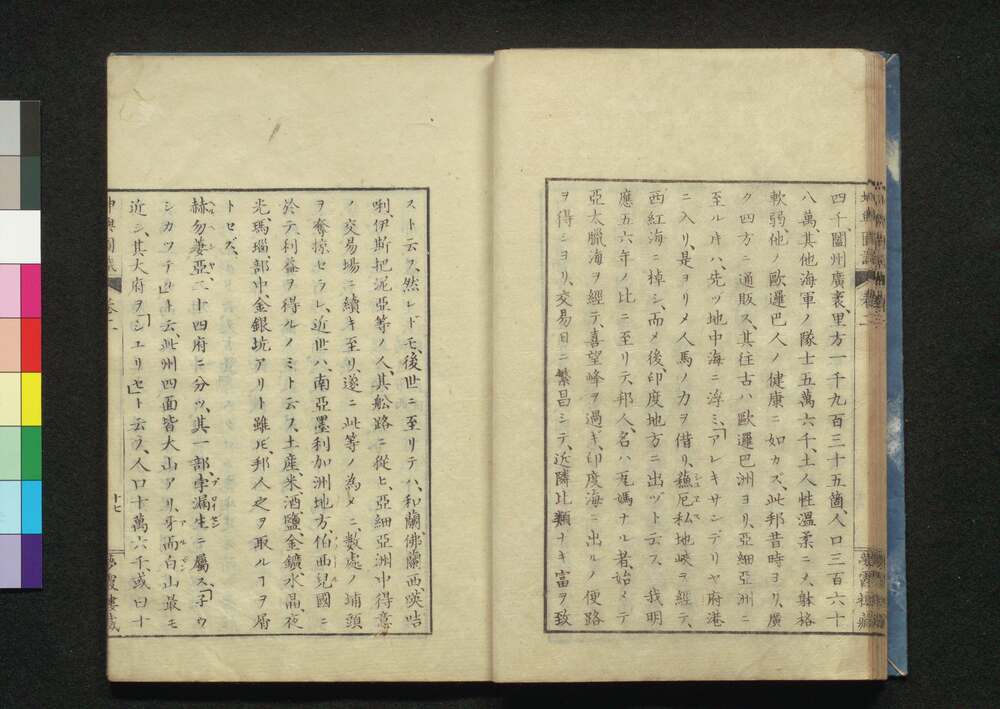 四千闘州廣袤、里方一千九百三十五箇、人口三百六十
八萬、其他海軍ノ隊士五萬六千、土人性溫柔ニメ、躰格
軟弱、他ノ歐邏巴人ノ健康ニ如カズ、此邦昔時ヨリ、廣
ク四方ニ通販ス、其往古ハ歐邏巴洲ヨリ、亞細亞洲ニ
至ル片ハ、先ヅ地中海ニ浮ミ、「アレキサンデリヤ府港
ニ入リ、是ヨリメ人馬ノ力ヲ借リ、蘓厄私地峽ヲ經テ、
西紅海ニ棹シ、而メ後、印度地方ニ出ヅト云ス、我明
應五六年ノ比ニ至リテ、邦人、名ハ瓦媽ナル者、始メテ
亞太臘海ヲ經テ、喜望峰ヲ過ギ、印度海ニ出ルノ便路
ヲ得シヨリ、交易日ニ繁昌シテ、近隣比類ナキ富ヲ致
ストス云ス、然レドモ、後世ニ至リテハ、和蘭、佛蘭西、暎咭
唎、伊斯把泥亞等ノ人、其舩路ニ從ヒ、亞細亞洲中得意
ノ交易場ニ續キ至リ、遂ニ此等ノ為メニ、數處ノ埔頭
ヲ奪掠セラレ、近世ハ、南亞墨利加洲地方、伯西兒國ニ
於テ、利益ヲ得ルノミト云ス、土産、米酒鹽金鑛水晶、夜
光瑪瑙、部中、金銀坑アリト雖ㇺ、邦人之ヲ取ルヿヲ屑
トセズ、
赫勿萋亞、二十四府ニ分ツ、其一部、孛漏生ニ屬ス、「子ウ
シカツテ」ト云、此州四面皆大山アリ、牙而白山最モ
近シ、其大府ヲ「シュリセ」ト云ス、人口十萬六千、或曰十
卷二
十七
夢霞樓藏